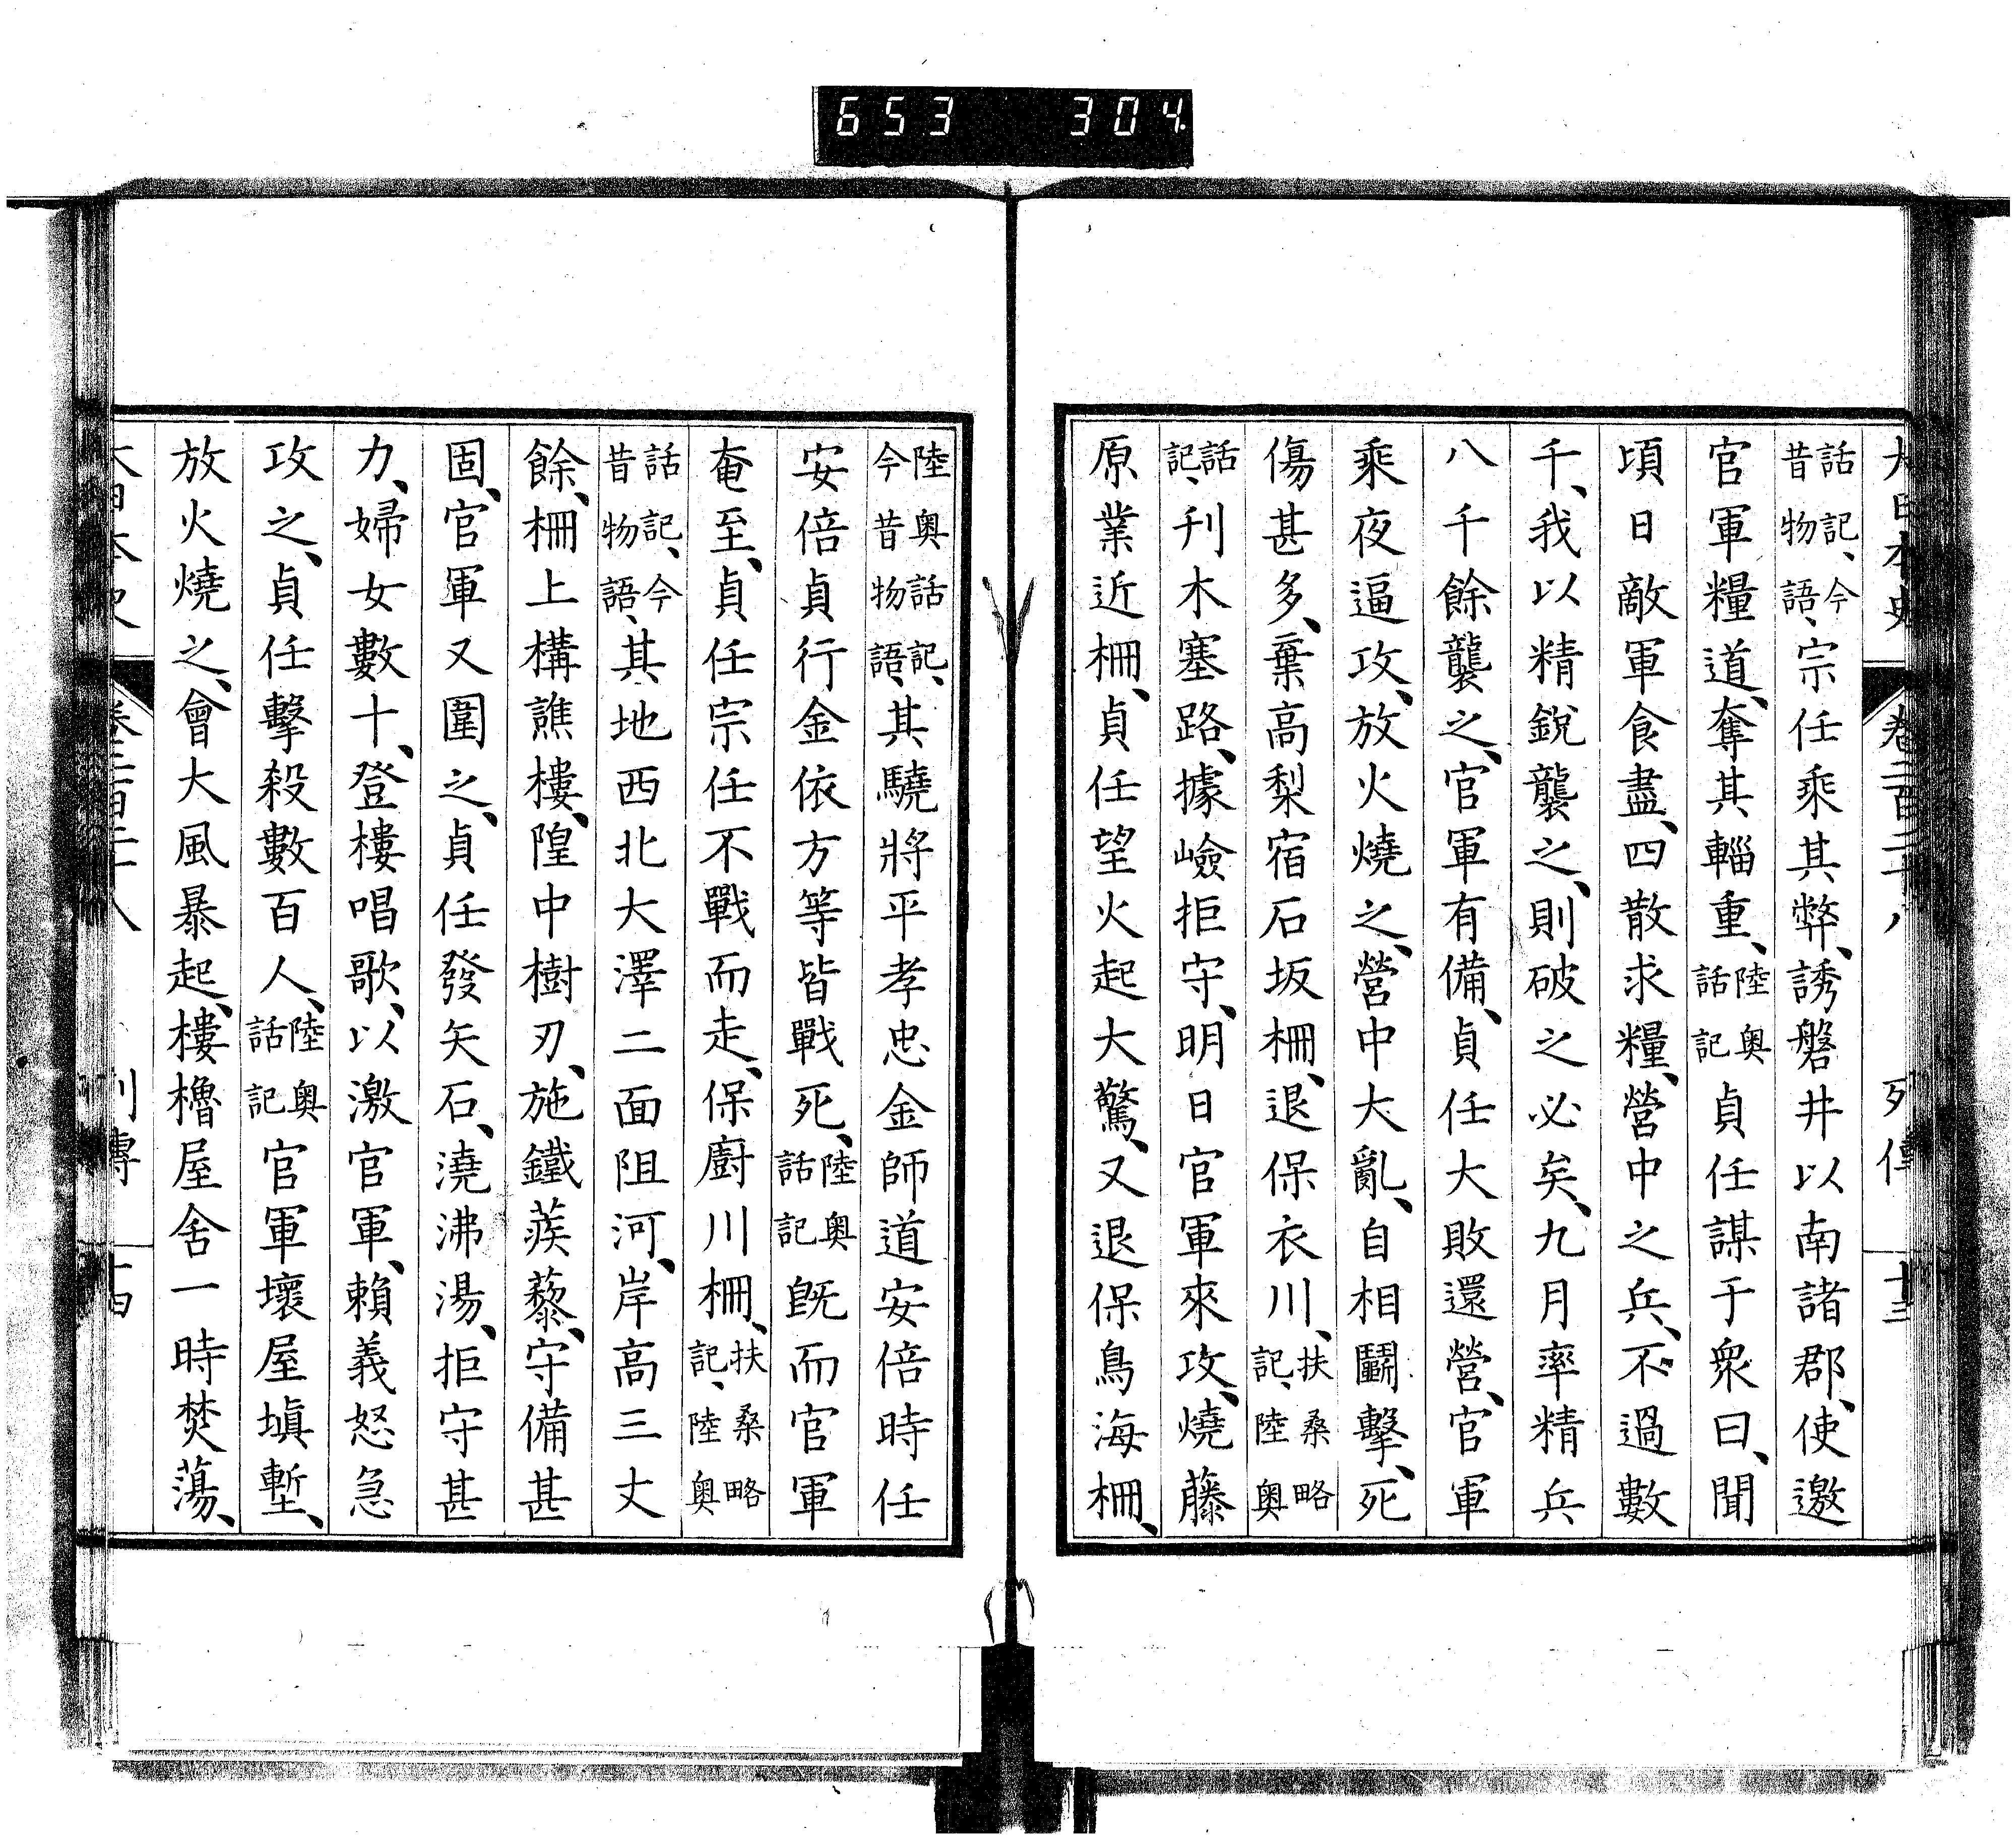 653 304
大日本史 卷二百二十八 列傳 十三
話記、今昔物語、宗任乘其弊、誘磐井以南諸郡、使邀
官軍糧道、奪其輜重、陸奧話記貞任謀于衆曰、聞
頃日敵軍食盡、四散求糧、營中之兵、不過數
千、我以精銳襲之、則破之必矣、九月率精兵
八千餘襲之、官軍有備、貞任大敗還營、官軍
乘夜逼攻、放火燒之、營中大亂、自相鬭擊、死
傷甚多、棄高梨宿石坂柵、退保衣川、扶桑略記、陸奧
話記、刊木塞路、據嶮拒守、明日官軍來攻、燒藤
原業近柵、貞任望火起大驚、又退保鳥海柵、
陸奧話記、今昔物語、其驍將平孝忠金師道安倍時任
安倍貞行金依方等皆戰死、陸奧話記既而官軍
奄至、貞任宗任不戰而走、保廚川柵、扶桑略記、陸奧
話記、今昔物語、其地西北大澤二面阻河、岸高三丈
餘、柵上構譙樓、隍中樹刃、施鐵蒺藜、守備甚
固、官軍又圍之、貞任發矢石、澆沸湯、拒守甚
力、婦女數十、登樓唱歌、以激官軍、賴義怒急
攻之、貞任擊殺數百人、陸奧話記官軍壞屋塡塹、
放火燒之、會大風暴起、樓櫓屋舍一時焚蕩、
大日本史 卷二百二十八 列傳 十四